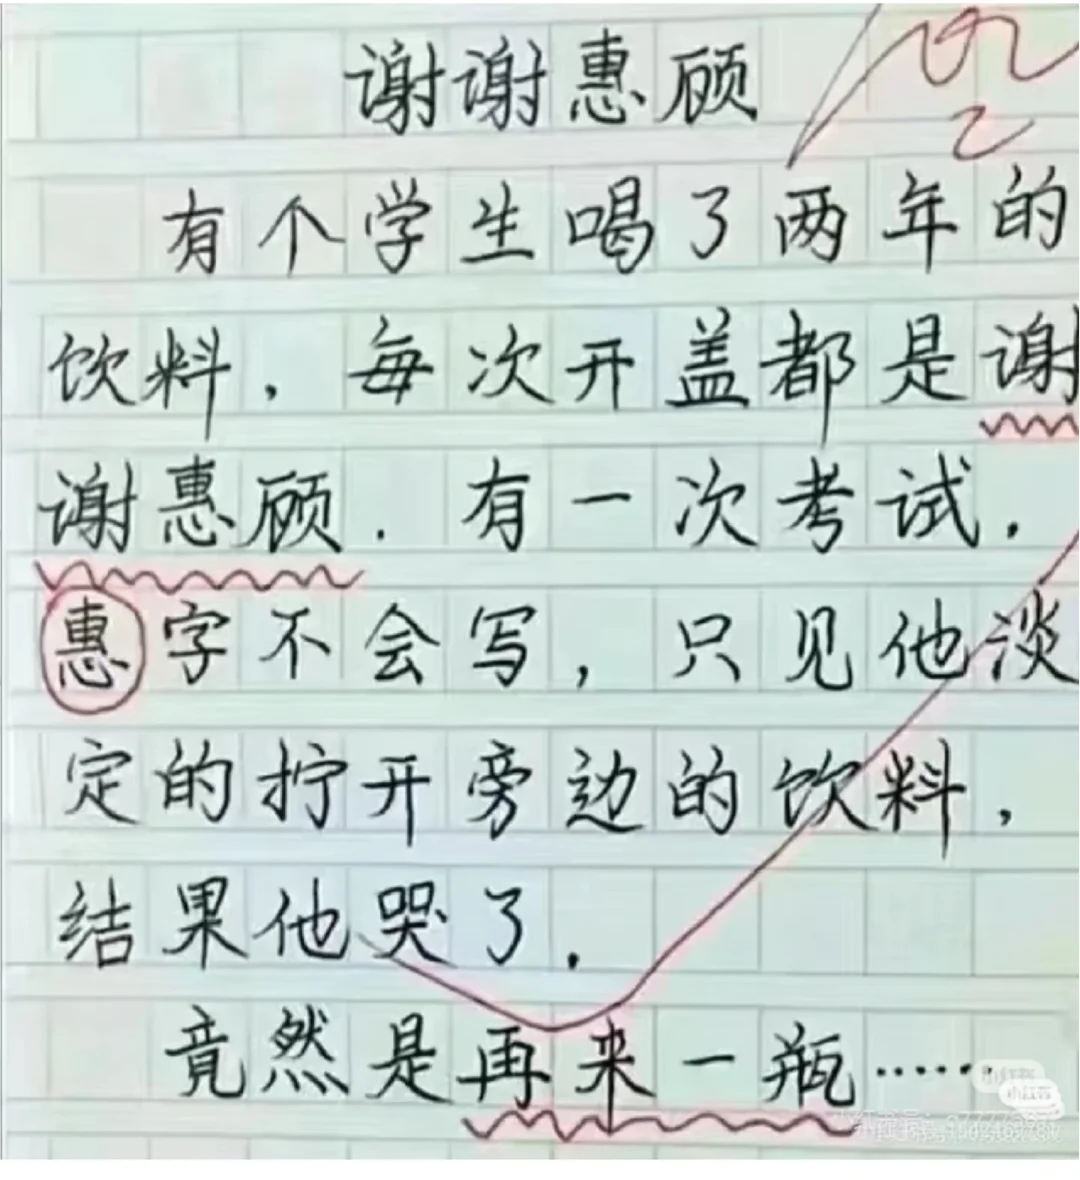 谢谢惠顾
有个学生喝了两年的
饮料，每次开盖都是谢
谢惠顾．有一次考试，
惠字不会写，只见他淡
定的拧开旁边的饮料，
结果他哭了．
竟然是再来一瓶……
小红书